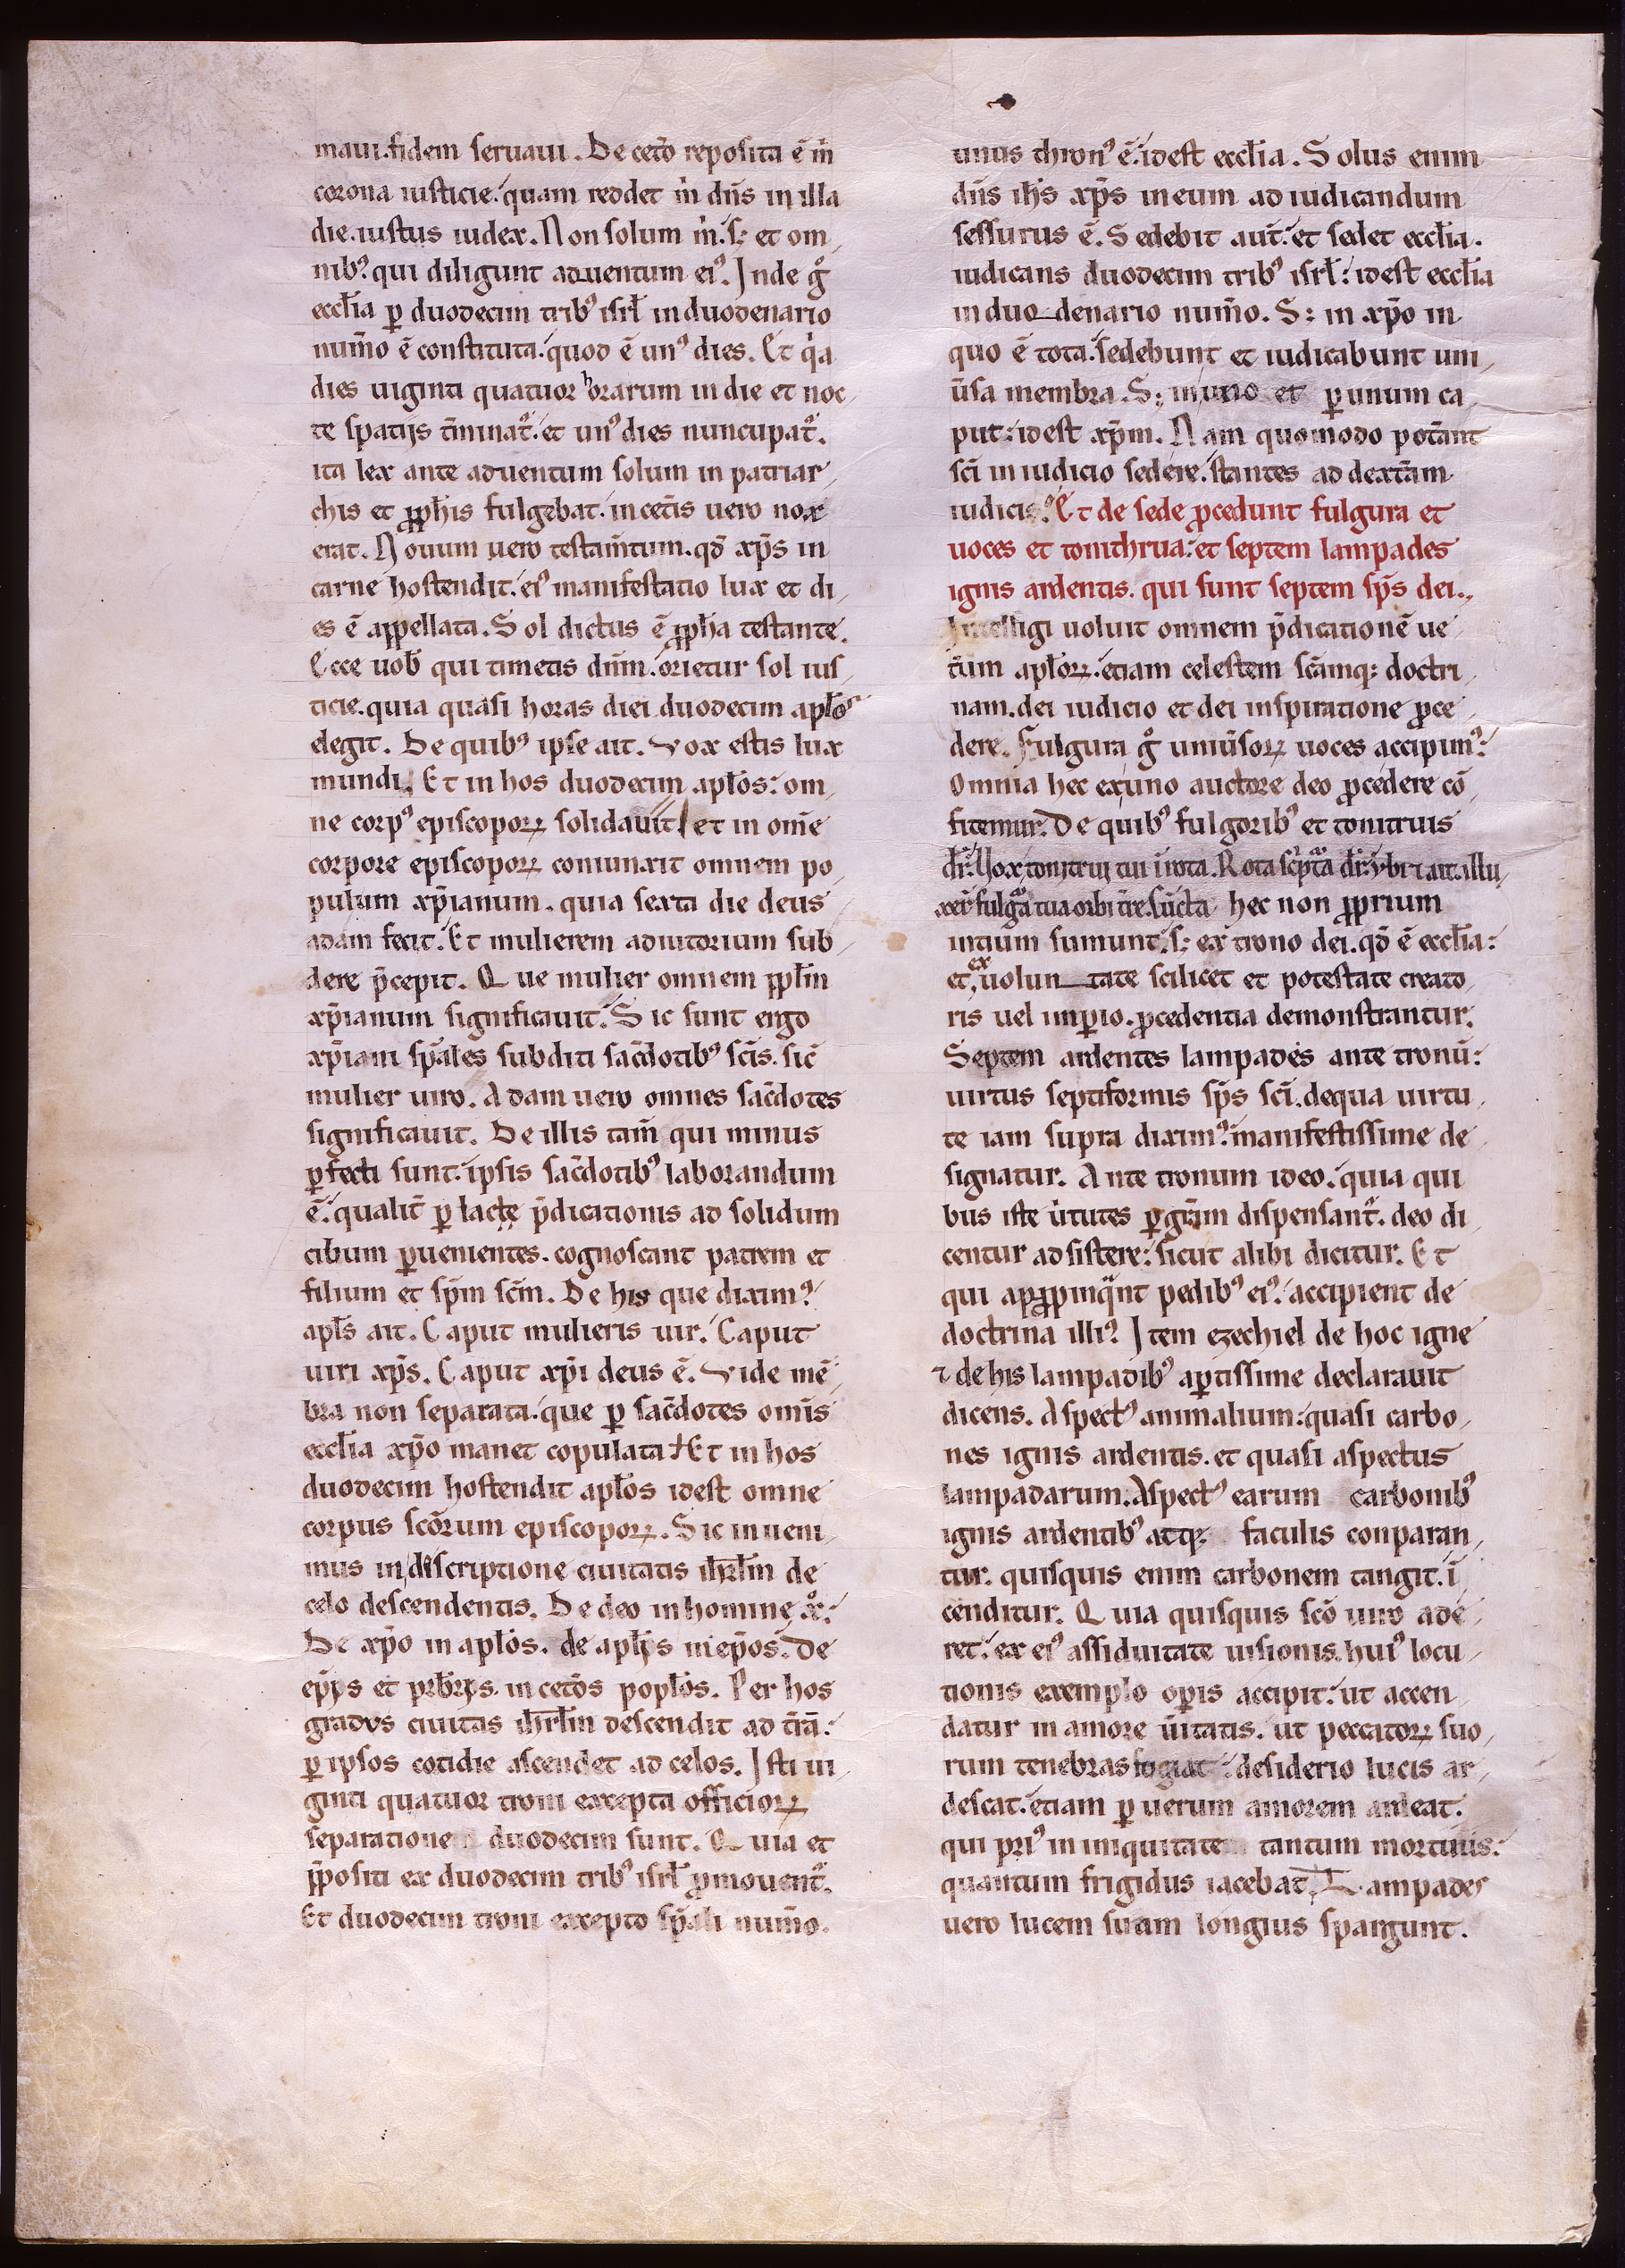 maui. fidem seruaui. De ceto̅ reposita ē m̍
corona iusticie. quam reddet m̍ dn̅s in illa
die. iustus iudex. Non solum m̍. s; et om
nibꝰ qui diligunt aduentum eiꝰ. Inde gͦ
eccl̅ia ꝑ duodecim tribꝰ isrl̅ in duodenario
num̅o ē constituta. quod ē unꝰ dies. Et qͥa
dies uiginti quatuor horarum in die et noc
te spatijs t̅minat᷑. et unꝰ dies nuncupat᷑.
ita lex ante aduentum solum in patriar
chis et ꝓphis fulgebat. in cet̅is uero nox
erat. Nouum uero testam̅tum. qd̅ xp̅s in
carne hostendit. eiꝰ manifestatio lux et di
es ē appellata. Sol dictus ē ꝓph̅a testante.
Ecce uob̅ qui timetis dn̅m. orietur sol ius
ticie. quia quasi horas diei duodecim apl̅os
elegit. De quibꝰ ipse ait. Vox estis lux
mundi. Et in hos duodecim apl̅os: om
ne corpꝰ episcopoꝝ solidauit et in om̅e
corpore episcopoꝝ coniunxit omnem po
pulum xp̅ianum. quia sexta die deus
adam fecit. Et mulierem adiutorium sub
dere p̅cepit. Que mulier omnem ppl̅m
xp̅ianum significauit. Sic sunt ergo
xp̅iani sp̅ales subditi sac̅dotibꝰ sc̅is. sic̅
mulier uiro. Adam uero omnes sac̅dotes
significauit. De illis tam̅ qui minus
ꝑfecti sunt. ipsis sac̅dotibꝰ laborandum
ē. qualit̅ ꝑ lacte p̅dicationis ad solidum
cibum ꝑuenientes. cognoscant patrem et
filium et sp̅m sc̅m. De his que diximꝰ
apl̅s ait. Caput mulieris uir. Caput
uiri xp̅s. Caput xp̅i deus ē. Vide mē
bra non separata. que ꝑ sac̅dotes om̅is
eccl̅ia xp̅o manet copulata Et in hos
duodecim hostendit apl̅os idest omne
corpus sc̅orum episcopoꝝ. Sic inueni
mus in discriptione ciuitatis ihrl̅m de
celo descendentis. De deo in homine
De xp̅o in apl̅os. de apl̅is in ep̅os. De
ep̅ijs et prb̅ijs in cet̅os popl̅os. Per hos
gradus ciuitas ihrl̅m descendit ad t̅rā:
ꝑ ipsos cotidie ascendet ad celos. Isti ui
ginti quatuor troni excepta officioꝝ
separatione duodecim sunt. Quia et
p̅positi ex duodecim tribꝰ isrl̅ ꝓmouent᷑.
Et duodecim troni excepto sp̅ali num̅o.
unus thronꝰ ē. idest eccl̅ia. Solus enim
dn̅s ih̅s xp̅s in eum ad iudicandum
sessurus ē. Sedebit aut̅. et sedet eccl̅ia.
iudicans duodecim tribꝰ isrl̅: idest eccl̅ia
in duodenario num̅o. S; in xp̅o in
quo ē tota. sedebunt et iudicabunt uni
u̅sa membra. S; in uno et ꝑ unum ca
put: idest xp̅m. Nam quomodo pot̅ant
sc̅i in iudicio sedere. stantes ad dext̅am
iudicis? Et de sede ꝓcedunt fulgura et
uoces et tonithrua: et septem lampades
ignis ardentis. qui sunt septem sp̅s dei.
Intelligi uoluit omnem p̅dicationē ue
t̅um apl̅oꝝ. etiam celestem sc̅amq; doctri
nam. dei iudicio et dei inspiratione ꝓce
dere. Fulgura gͦ uniu̅soꝝ uoces accipimꝰ.
Omnia hec ex uno auctore deo ꝓcedere cō
fitemur. De quibꝰ fulgoribꝰ et tonitruis
dr̅. Uox tonitrui tui ī rota. Rota scͥptͣa dr̅. ybi ait. illu
xer̅ fulgͣa tua orbi t̅re. hec non ꝓprium
initium sumunt. s; ex trono dei. qd̅ ē eccl̅ia:
et ex uoluntate scilicet et potestate creato
ris uel imꝑio. ꝓcedentia demonstrantur.
Septem ardentes lampades ante tronū:
uirtus septiformis sp̅s sc̅i. de qua uirtu
te iam supra diximꝰ. manifestissime de
signatur. Ante tronum ideo. quia qui
bus iste u̍tutes ꝑ gr̅am dispensant᷑. deo di
centur adsistere: sicut alibi dicitur. Et
qui apꝓpinqͣnt pedibꝰ eiꝰ. accipient de
doctrina illiꝰ. Item ezechiel de hoc igne
⁊ de his lampadibꝰ aꝑtissime declarauit
dicens. Aspectꝰ animalium: quasi carbo
nes ignis ardentis. et quasi aspectus
lampadarum. Aspectꝰ earum carbonibꝰ
ignis ardentibꝰ atq; faculis conparan
tur. quisquis enim carbonem tangit. ī
cenditur. Quia quisquis sc̅o uiro ade
ret: ex eiꝰ assiduitate uisionis. huiꝰ locu
tionis exemplo oꝑis accipit: ut accen
datur in amore u̅itatis. ut peccatoꝝ suo
rum tenebras fugiat: desiderio lucis ar
descat. etiam ꝑ uerum amorem ardeat.
qui priꝰ in iniquitate tantum mortuus:
quantum frigidus iacebat. Lampades
uero lucem suam longius spargunt.